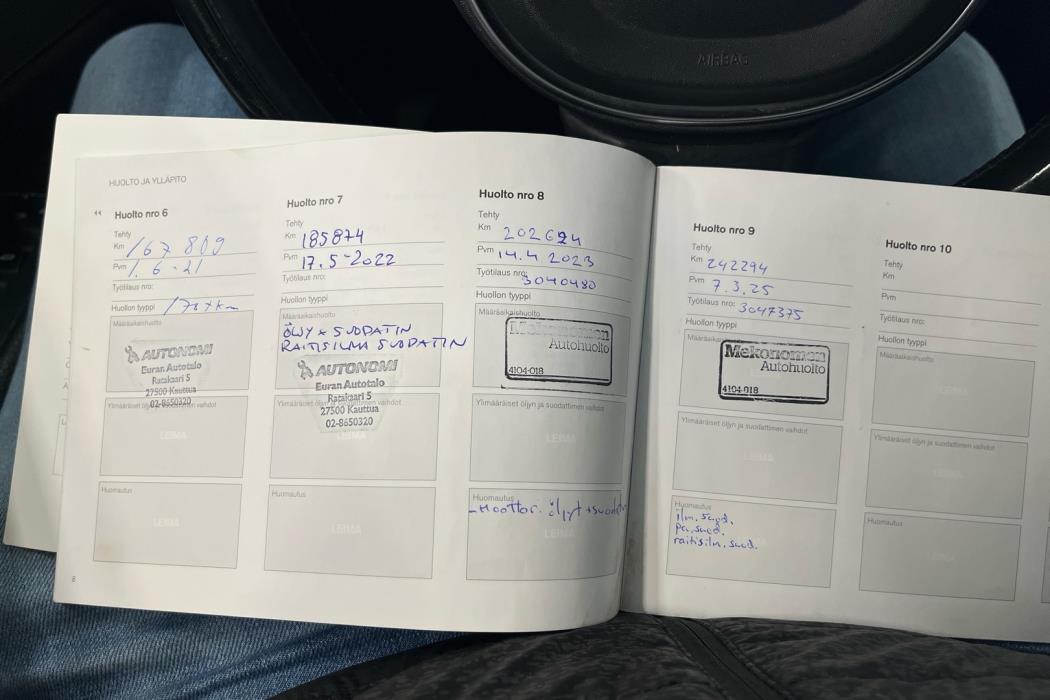 AIRBAG
HUOLTO JA YLLÄPITO
Huolto nro 6
Tehty
Km 167 809
Pvm 1.6-21
Työtilaus nro:
Huollon tyyppi 170 tkm
Määräaikaishuolto
AUTONOMI
Euran Autotalo
Ratakaari 5
27500 Kauttua
02-8650320
Ylimääräiset öljyn ja suodattimen vaihdot
LEIMA
Huomautus
LEIMA
8
Huolto nro 7
Tehty
Km 185874
Pvm 17.5-2022
Työtilaus nro:
Huollon tyyppi
Määräaikaishuolto
ÖLJY + SUODATIN
RAITISILMA SUODATIN
AUTONOMI
Euran Autotalo
Ratakaari 5
27500 Kauttua
02-8650320
Ylimääräiset öljyn ja suodattimen vaihdot
LEIMA
Huomautus
LEIMA
Huolto nro 8
Tehty
Km 202694
Pvm 14.4 2023
Työtilaus nro: 3040480
Huollon tyyppi
Määräaikaishuolto
Mekonomen
Autohuolto
4104-018
Ylimääräiset öljyn ja suodattimen vaihdot
LEIMA
Huomautus
-Moottori öljyt +suodatin
LEIMA
Huolto nro 9
Tehty
Km 242294
Pvm 7.3.25
Työtilaus nro: 3047375
Huollon tyyppi
Mekonomen
Autohuolto
4104-018
Ylimääräiset öljyn ja suodattimen vaihdot
LEIMA
Huomautus
ilm. suod.
pa. suod.
raitisilm. suod.
Huolto nro 10
Tehty
Km
Pvm
Työtilaus nro:
Huollon tyyppi
Määräaikaishuolto
LEIMA
Ylimääräiset öljyn ja suodattimen vaihdot
LEIMA
Huomautus
LEIMA